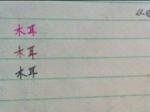 木耳
木耳
木耳